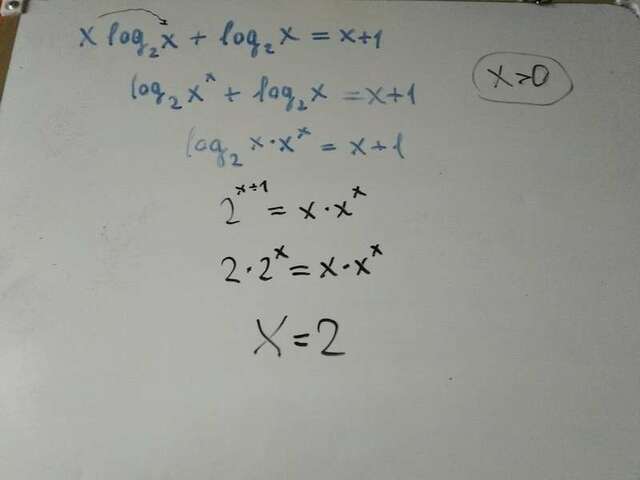 x log₂x + log₂x = x+1
x>0
log₂x^x + log₂x = x+1
log₂ x·x^x = x+1
2^(x+1) = x·x^x
2·2^x = x·x^x
X=2